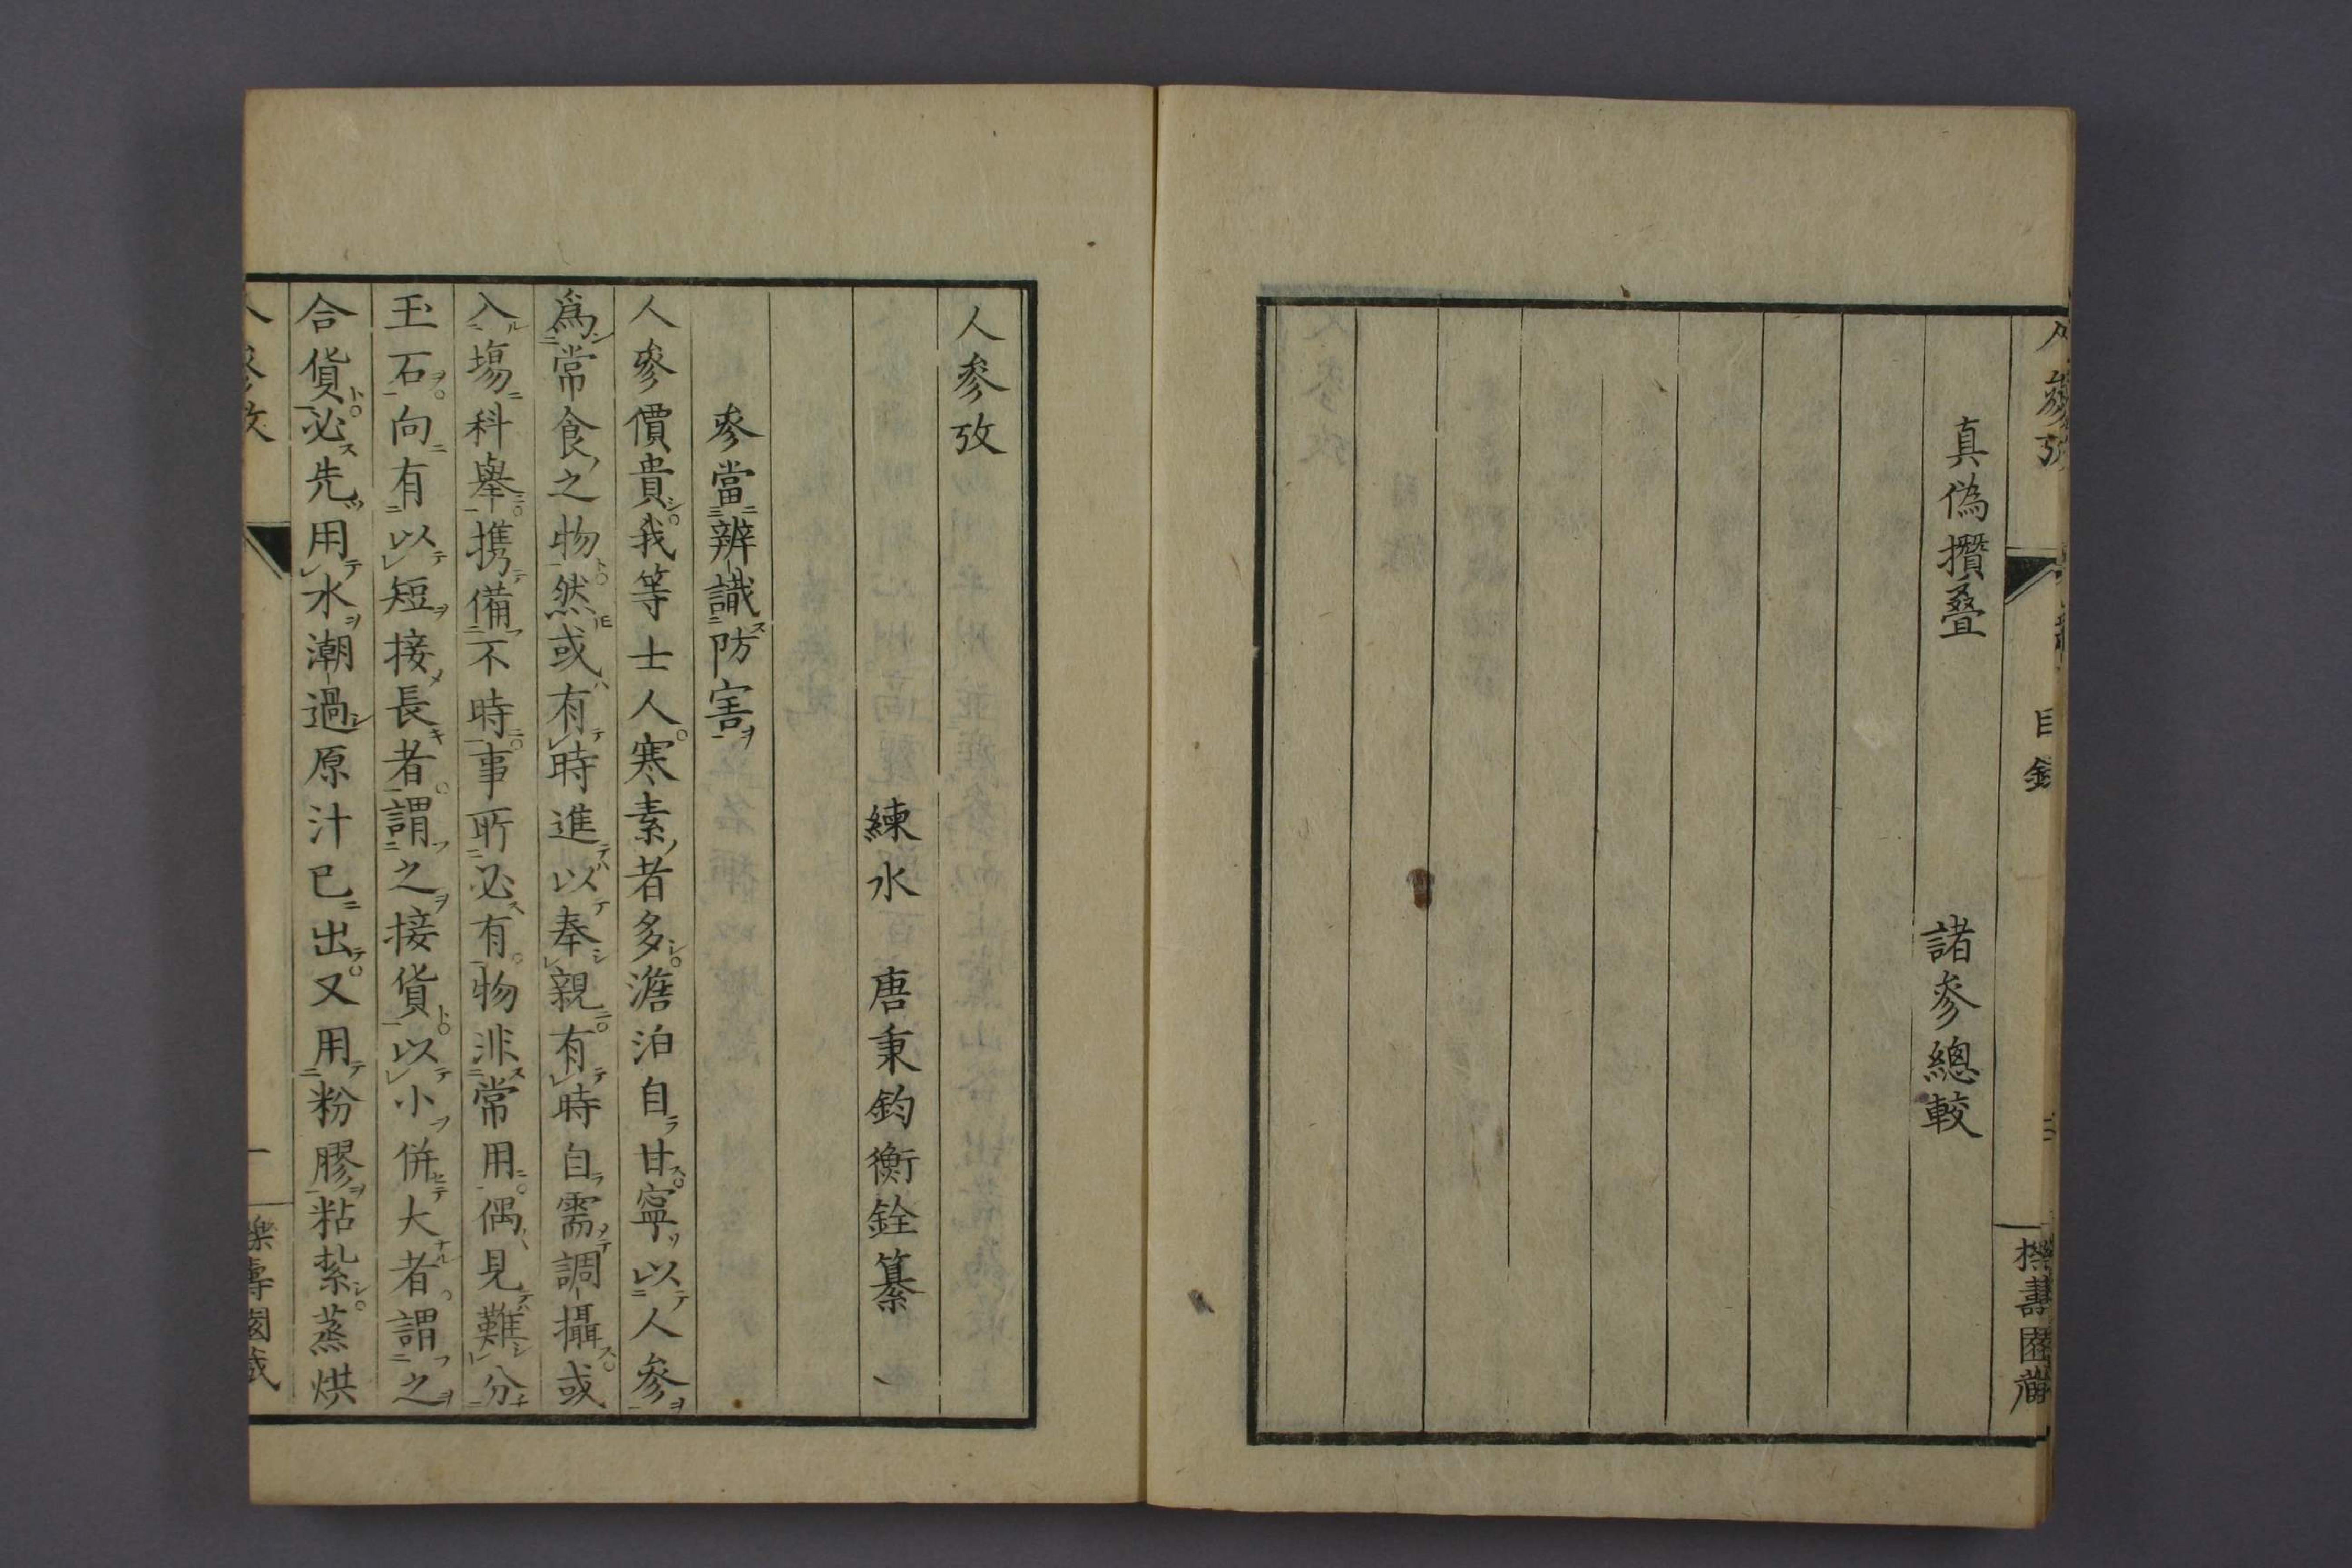 真偽攢疊　諸參總較
人參攷
練水　唐秉鈞衡銓纂
參當辨識防害
人參價貴我等士人寒素者多澹泊自甘寧以人參
爲常食之物然或有時進以奉親有時自需調攝或
入場科舉携備不時事所必有物非常用偶見難分
玉石向有以短接長者謂之接貨以小併大者謂之
合貨必先用水潮過原汁已出又用粉膠粘紮蒸烘
人參攷　一